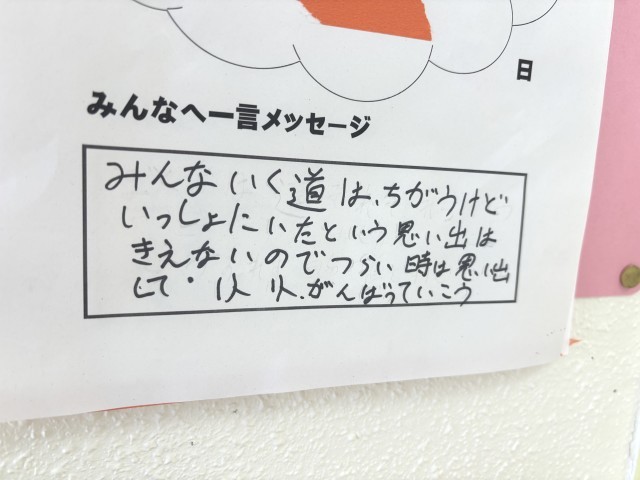 日
みんなへ一言メッセージ
みんないく道は、ちがうけど
いっしょにいたという思い出は
きえないのでつらい時は思い出
して・がんばっていこう